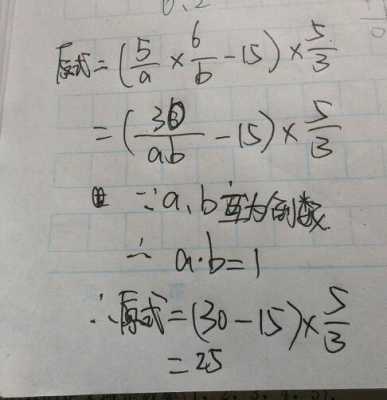 原式=(5/a×6/b-15)×5/3
=(30/ab-15)×5/3
∵a、b互为倒数
∴a·b=1
∴原式=(30-15)×5/3
=25